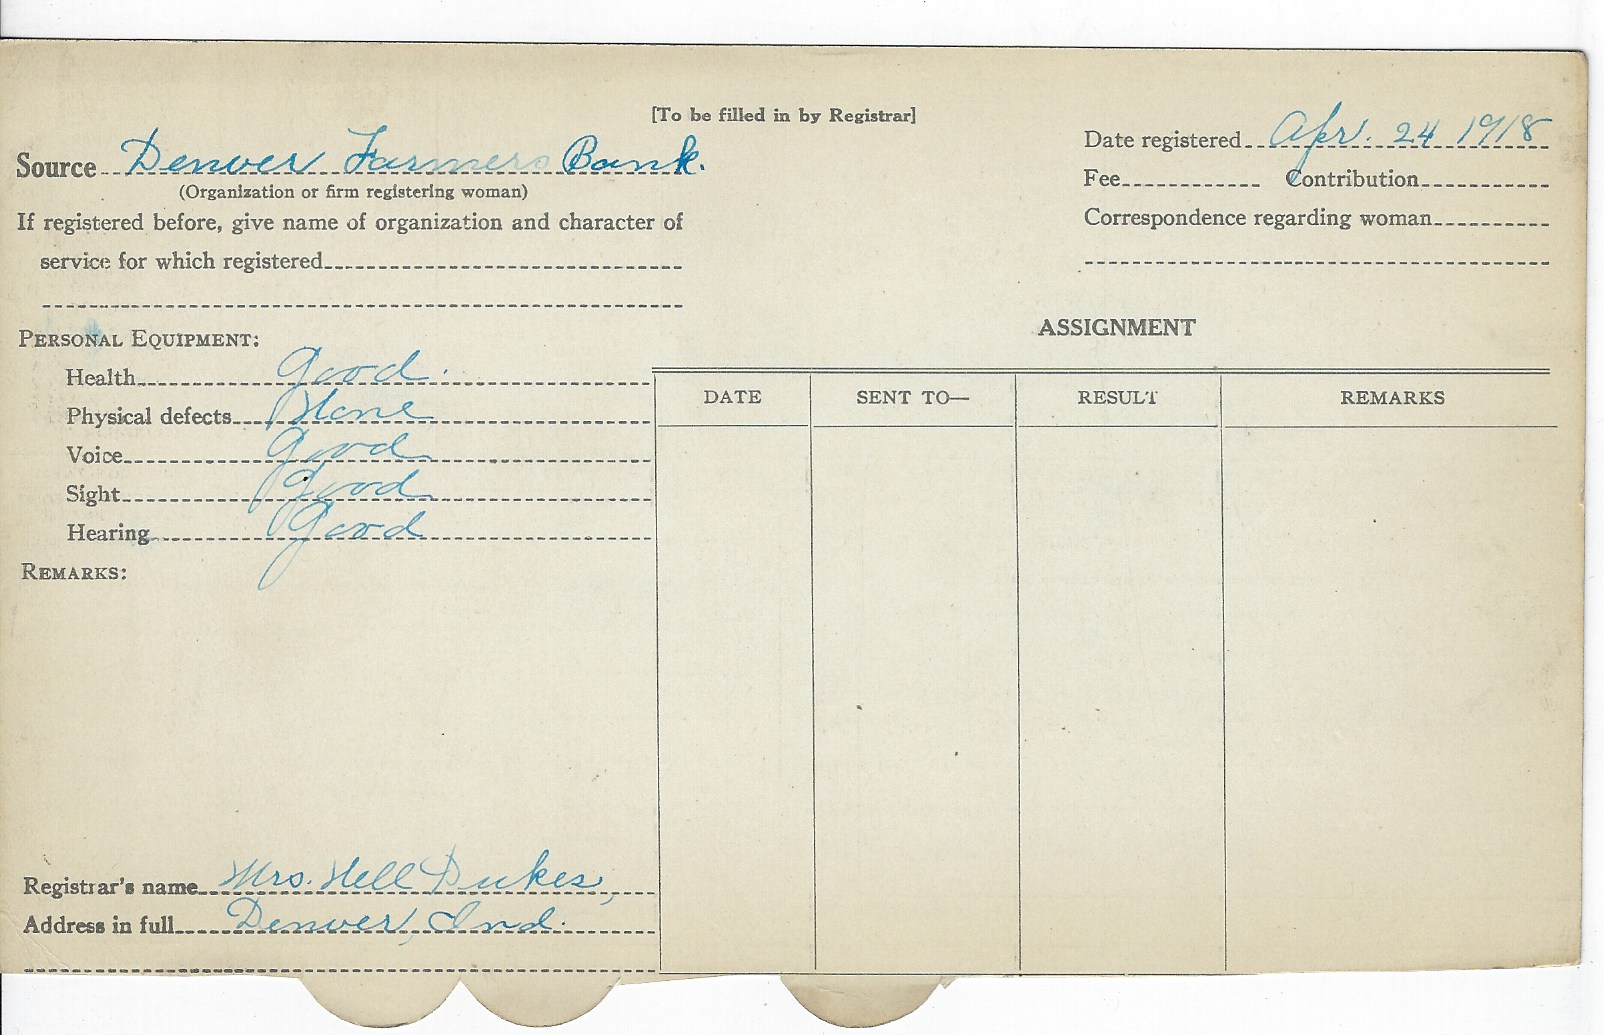 [To be filled in by Registrar]
Source Denver Farmers Bank.
(Organization or firm registering woman)
If registered before, give name of organization and character of
service for which registered
Date registered Apr. 24 1918
Fee Contribution
Correspondence regarding woman
PERSONAL EQUIPMENT:
Health Good.
Physical defects None
Voice Good
Sight Good
Hearing Good
REMARKS:
ASSIGNMENT
DATE SENT TO— RESULT REMARKS
Registrar's name Mrs. Nell Dukes,
Address in full Denver, Ind.